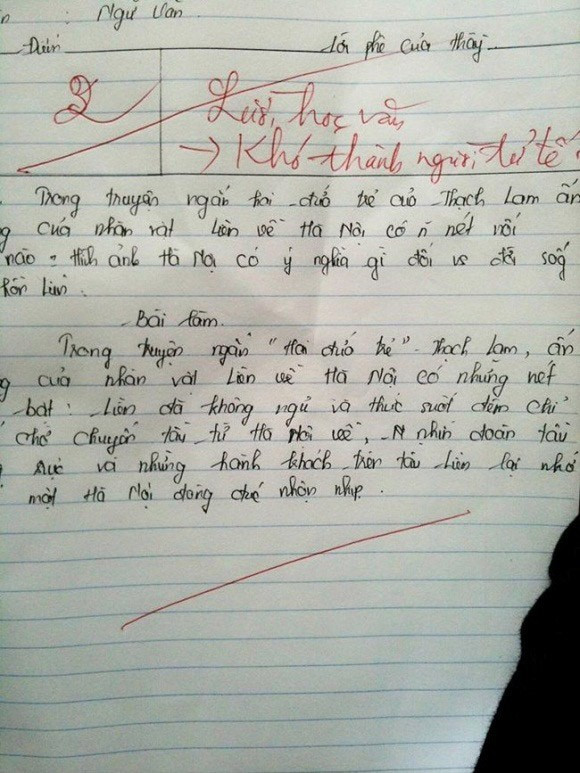 : Ngữ Văn
Điểm Lời phê của thầy
2 Lười học văn
→ Khó thành người tử tế
. Trong truyện ngắn hai đứa trẻ của Thạch Lam ấn
g của nhân vật Liên về Hà Nội có n nét nổi
nào = hình ảnh Hà Nội có ý nghĩa gì đối vs đời sốg
hồn Liên.
Bài làm.
Trong truyện ngắn "Hai đứa trẻ" Thạch Lam, ấn
g của nhân vật Liên về Hà Nội có những nét
bật: Liên đã không ngủ và thức suốt đêm chỉ
chờ chuyến tàu từ Hà Nội về, nhìn đoàn tàu
rực và những hành khách trên tàu Liên lại nhớ
một Hà Nội đông đúc nhộn nhịp.